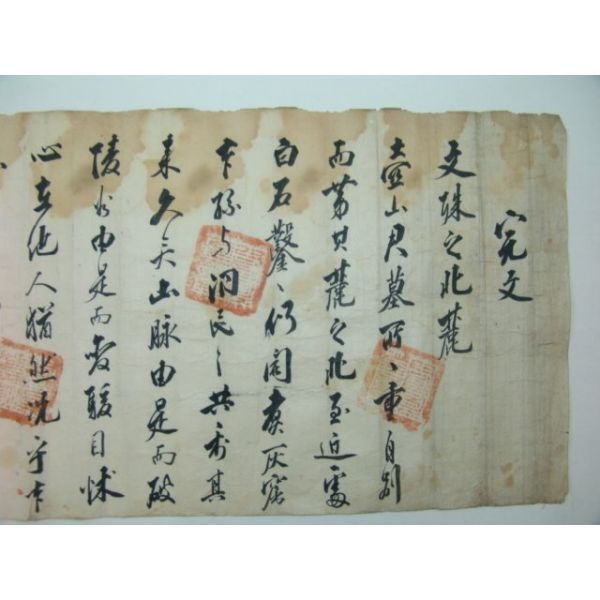 完文
文殊之北麓
壺山君墓所〻重自別
而第其麓之北至近處
白石鑿〻仍煮灰窑
本孫与洞民之共其
來久矣山脉由是而破
陵谷由是而變駭目怵
心在他人猶然況乎本